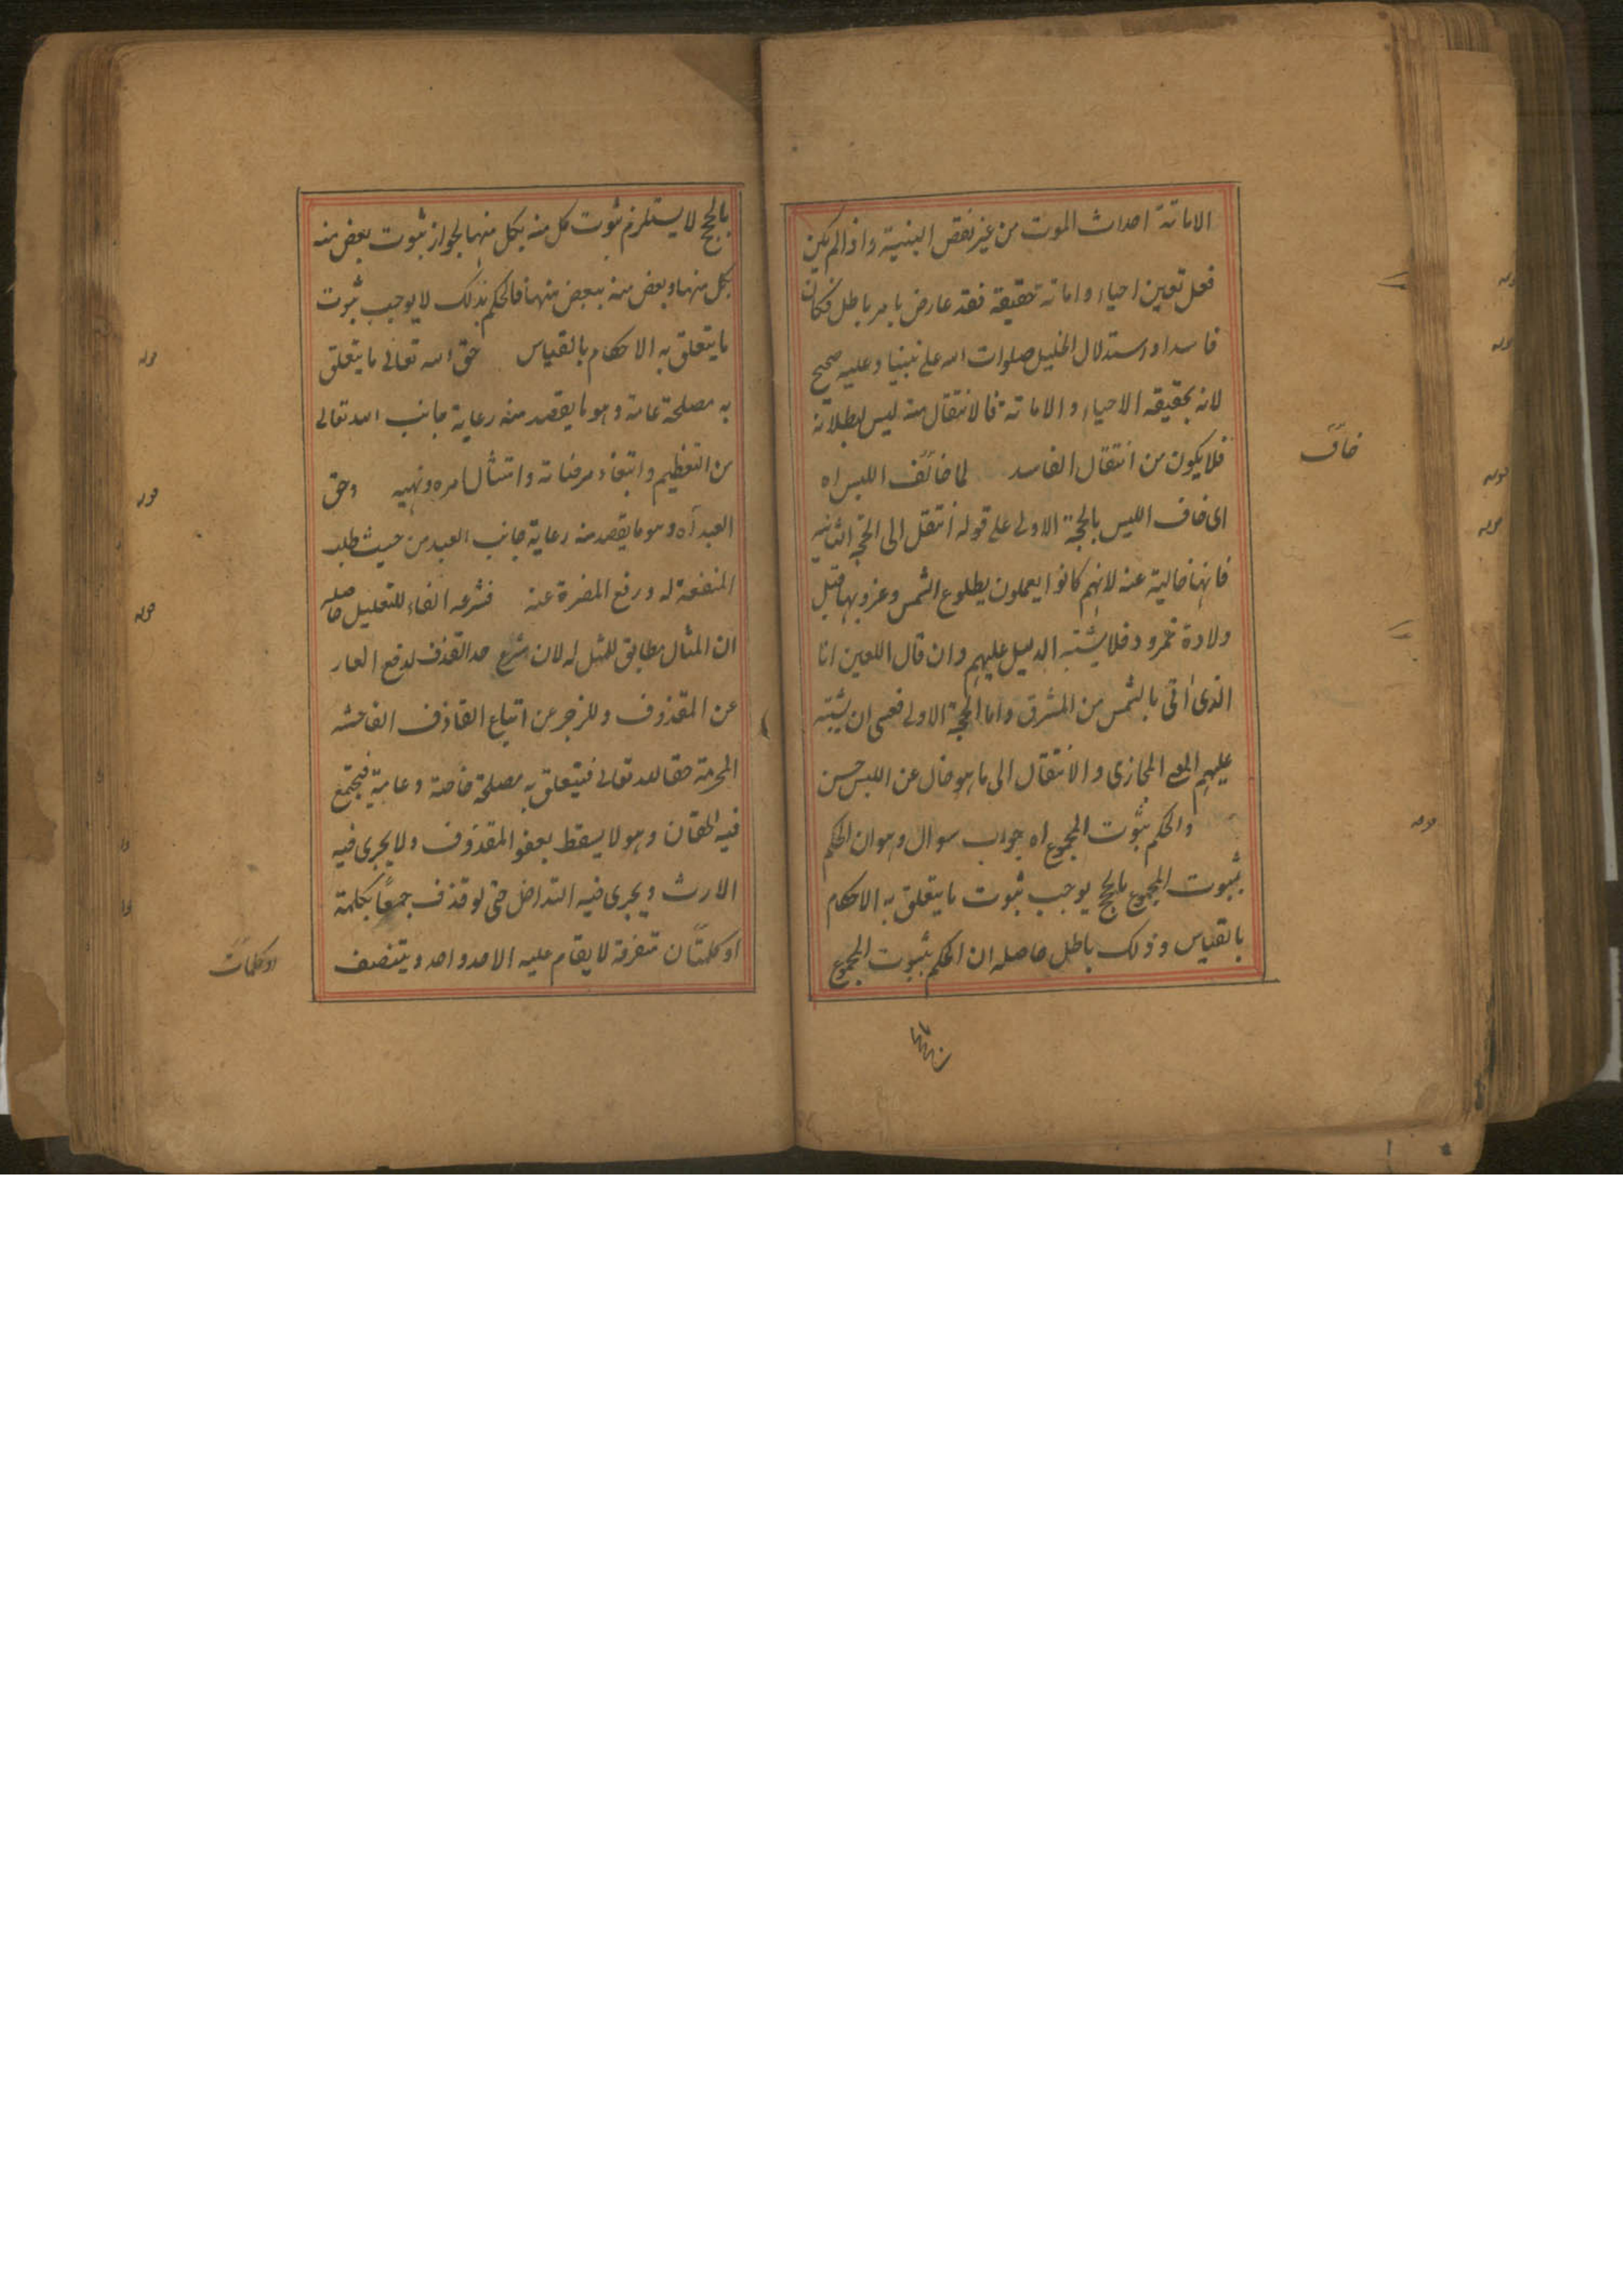 الاماتة احداث الموت من غير نقض البنية واذا لم يكن
فعل لعين احياء واماتة حقيقة فقد عارض بامر باطل فكان
فاسدا واستدلال الخليل صلوات الله على نبينا وعليه صحيح
لانه بحقيقة الاحياء والاماتة فالانتقال منه ليس لبطلانه
فلا يكون من انتقال الفاسد لما خاف اللبس اه
خاف
اى خاف اللبس بالحجة الاولى على قوله انتقل الى الحجة الثانية
فانها خالية عنه لانهم كانوا يعلمون بطلوع الشمس وغروبها قبل
ولادة نمرود فلا يشتبه الدليل عليهم وان قال اللعين انا
الذى اتى بالشمس من المشرق واما الحجة الاولى فعسى ان يشتبه
عليهم المعنى المجازى والانتقال الى ما هو خال عن اللبس حسن
والحكم بثبوت المجموع اه جواب سوال وهو ان الحكم
بثبوت المجموع بالحجج يوجب ثبوت ما يتعلق به الاحكام
بالقياس وذلك باطل حاصله ان الحكم بثبوت المجموع
بالحجج لا يستلزم ثبوت كل منه بكل منها لجواز ثبوت بعض منه
بكل منها وبعض منه ببعض منها فالحكم بذلك لا يوجب ثبوت
ما يتعلق به الاحكام بالقياس حق الله تعالى ما يتعلق
قوله
به مصلحة عامة وهو ما يقصد منه رعاية جانب الله تعالى
من التعظيم وابتغاء مرضاته وامتثال امره ونهيه وحق
قوله
العبد اه وهو ما يقصد منه رعاية جانب العبد من حيث طلب
المنفعة له ورفع المضرة عنه فشرعه الفاء للتعليل حاصله
قوله
ان المثال مطابق للمثل له لان شرع حد القذف لدفع العار
عن المقذوف وللزجر عن اتباع القاذف الفاحشه
المحرمة حقا لله تعالى فيتعلق به مصلحة خاصة وعامية فيجتمع
فيه الحقان وهو لا يسقط بعفو المقذوف ولا يجرى فيه
الارث ويجرى فيه التداخل حتى لو قذف جمعًا بكلمة
او كلمتان متفرقة لا يقام عليه الا حد واحد ويتنصف
او كلمات